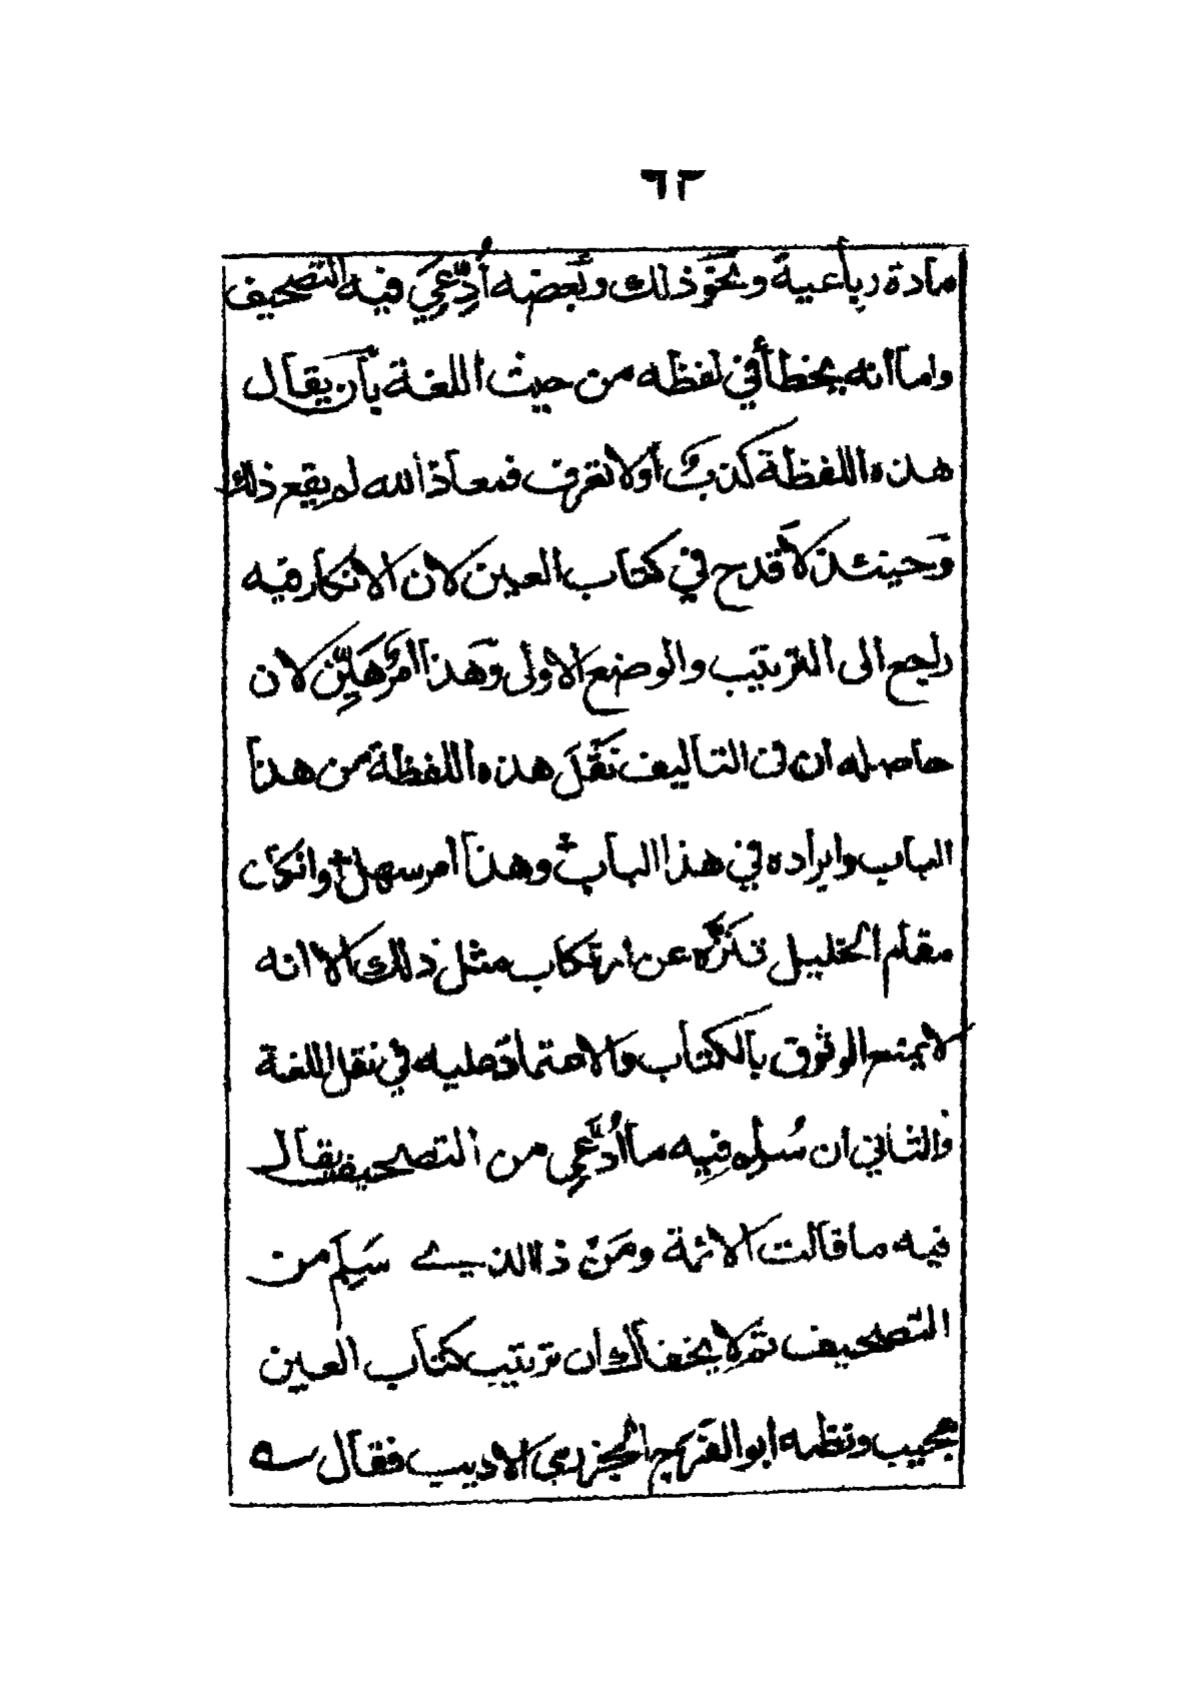 ٦٣
مادة رباعيةً ونَحْوِ ذلك وبَعضه اُدِّعِيَ فيه التصحيف
واما انه يخطأ في لفظه من حيث اللغة بان يقال
هذه اللفظة كذبٌ أولا تعرف فمعاذ الله لم يقع ذلك
وَحينئذ لاَ قدح في كتاب العين لان الانكار فيه
راجع الى الترتيب والوضع الاولى وَهذا امرٌ هَيِّن لان
حاصله ان في التاليف نَقْلَ هذه اللفظة من هذا
الباب وايراده في هذا الباب وهذا امر سهل وانكان
مقام الخليل تنزُّه عن ارتكاب مثل ذلك الا انه
لا يمنع الوثوق بالكتاب والاعتماد عليه في نقل اللغة
والثاني ان سُلِّم فِيه ما ادُّعِي من التصحيف يقال
فيه ما قالت الائمة ومَنْ ذا الذي سَلِمَ من
التصحيف ثم لا يخفاك ان ترتيب كتاب العين
عجيب ونظمه ابو الفرج الجزري الاديب فقال ــه